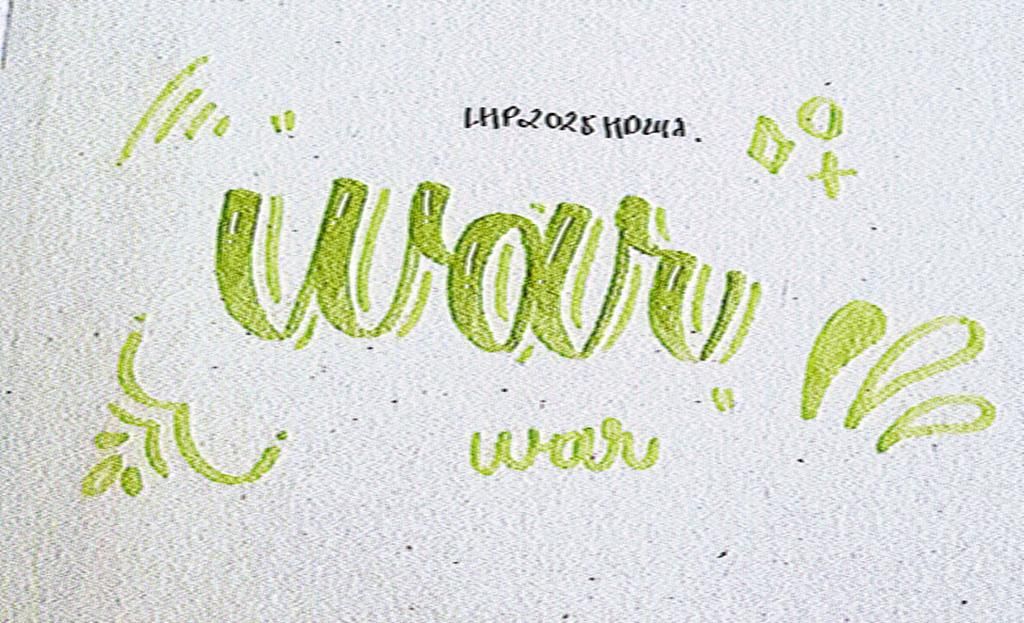 LHP2025HDMA.
war
war